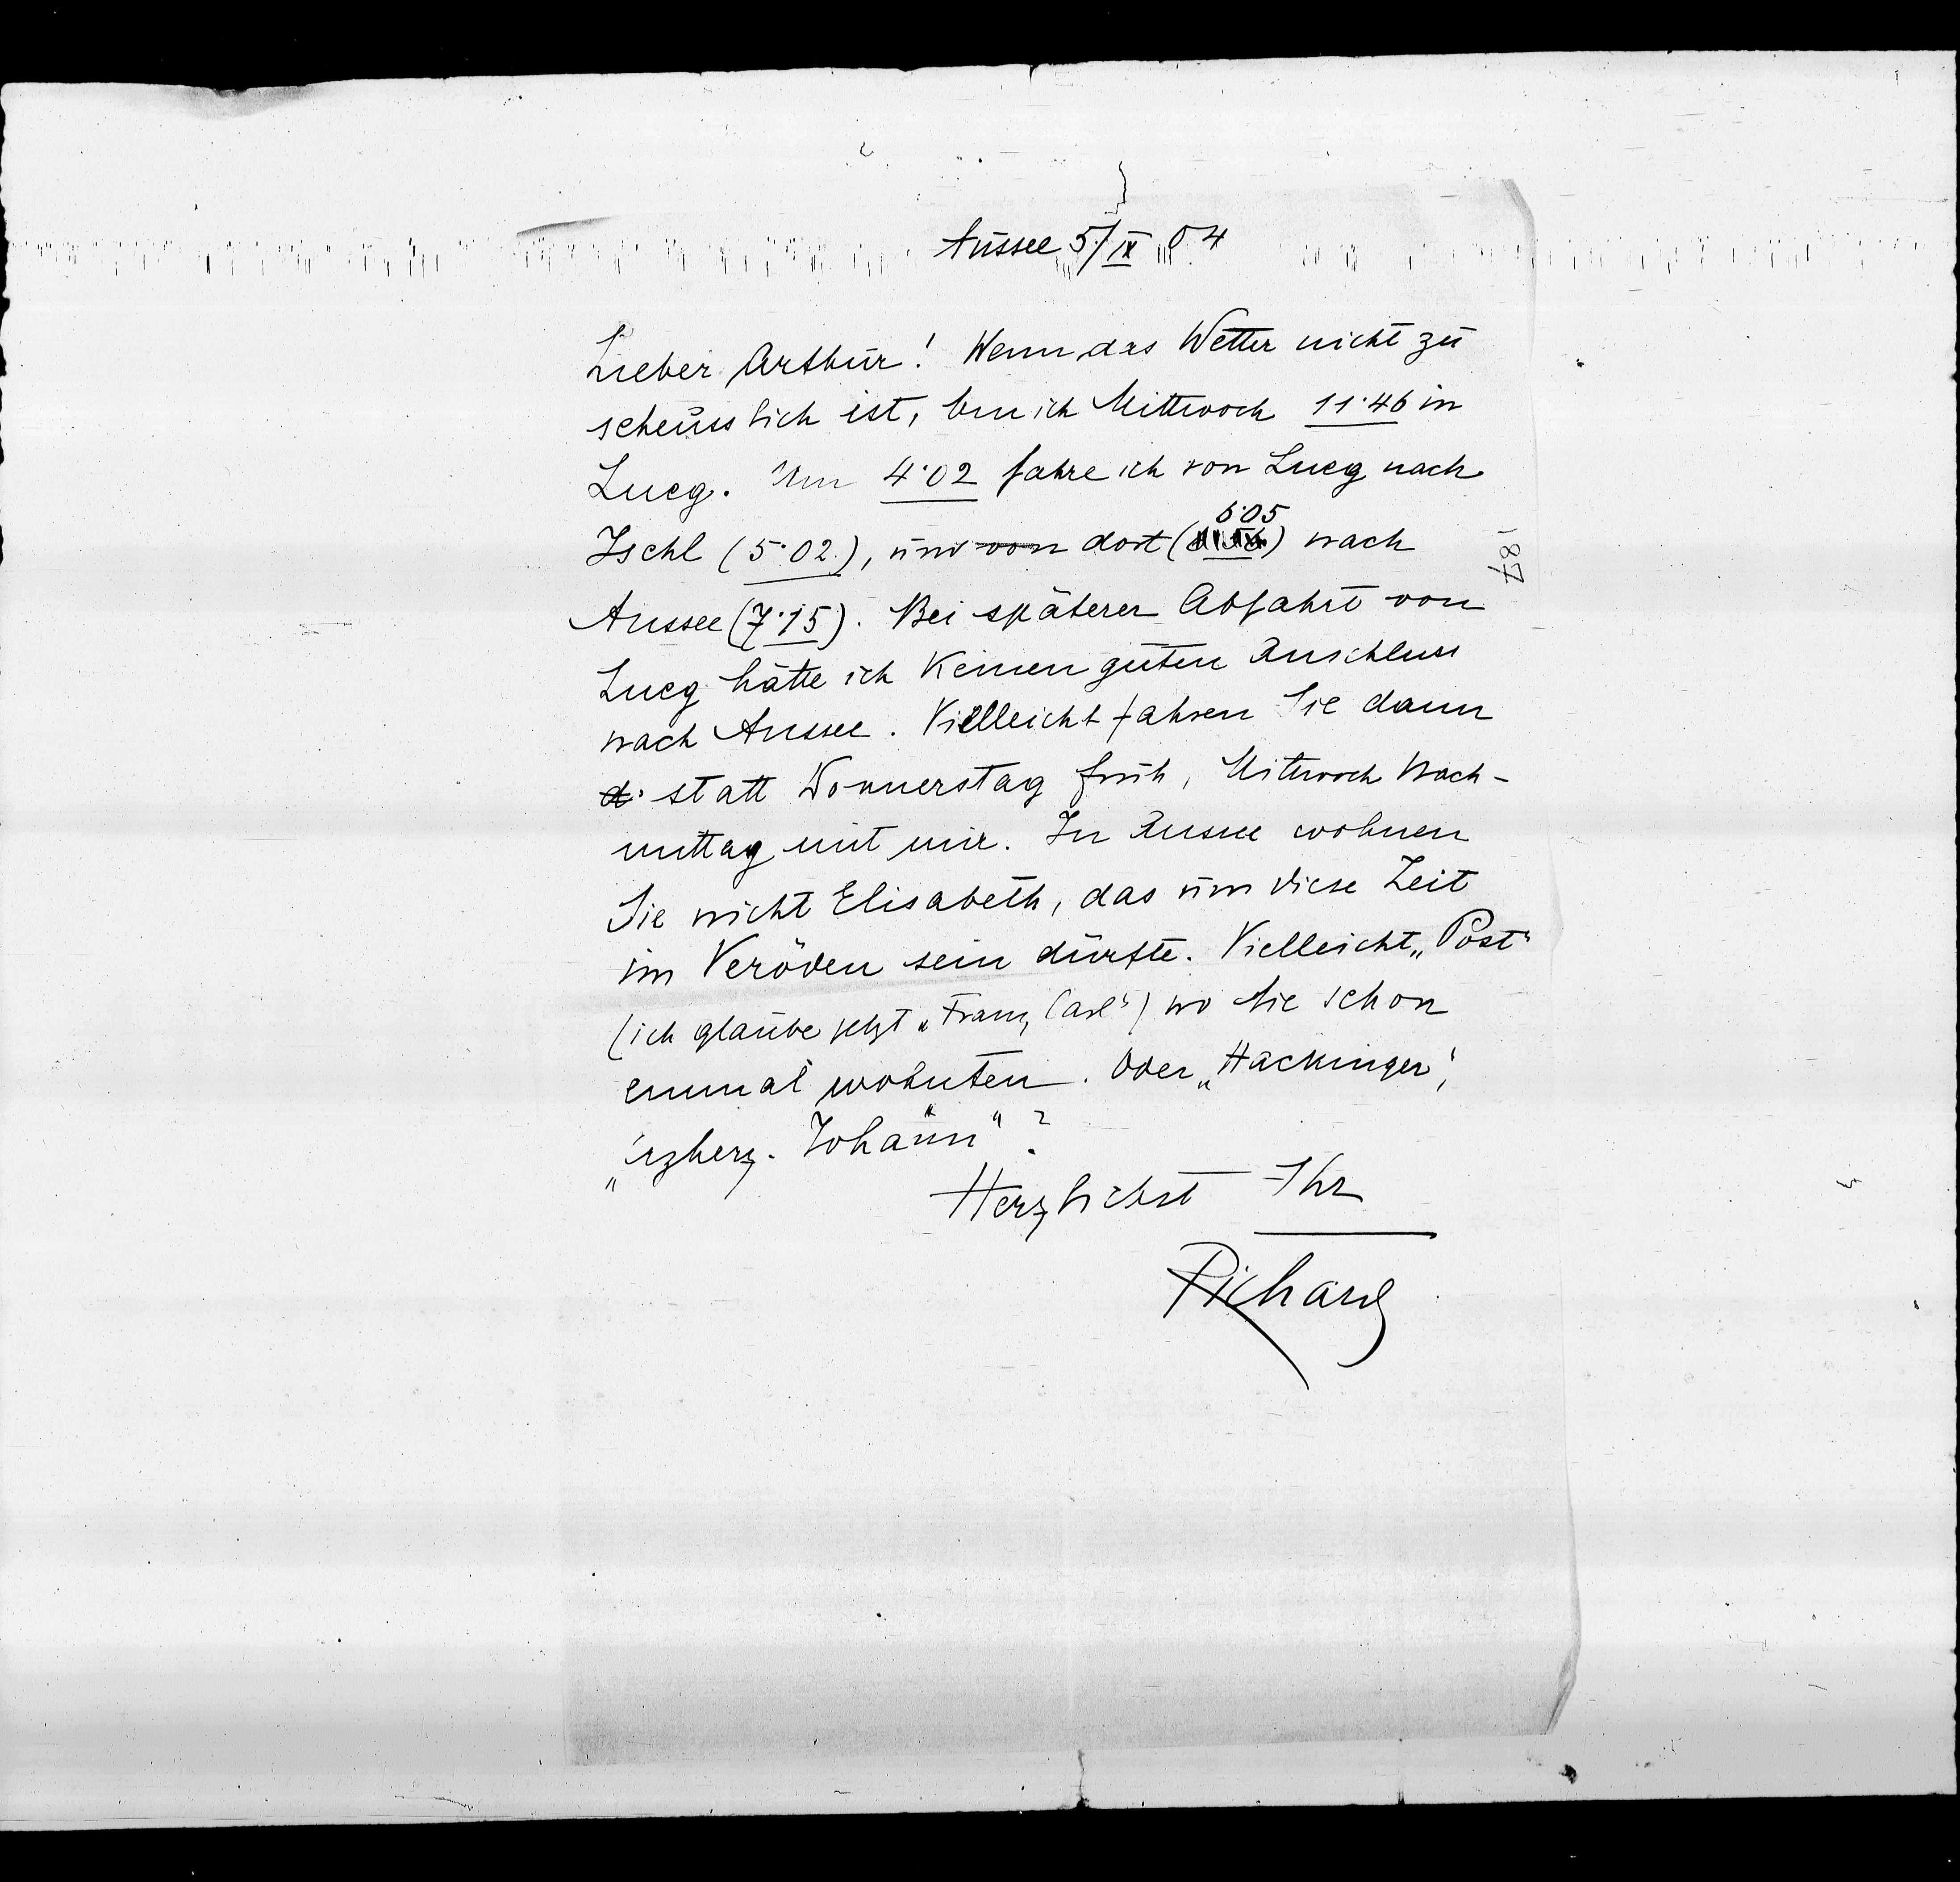 Aussee 5/IX 04
Lieber Arthur! Wenn das Wetter nicht zu
scheusslich ist, bin ich Mittwoch 11·46 in
Lueg. Um 4·02 fahre ich von Lueg nach
6·05
Ischl (5·02), und von dort () nach
187
Aussee (7·15). Bei späterer Abfahrt von
Lueg hätte ich keinen guten Anschluss
nach Aussee. Vielleicht fahren Sie dann
d. statt Donnerstag früh, Mittwoch Nach-
mittag mit mir. In Aussee wohnen
Sie nicht Elisabeth, das um diese Zeit
im Veröden sein dürfte. Vielleicht „Post“
(ich glaube jetzt „Franz Carl“) wo Sie schon
einmal wohnten. Oder „Hackinger“,
„Erzherz. Johann“?
Herzlichst Ihr
Richard